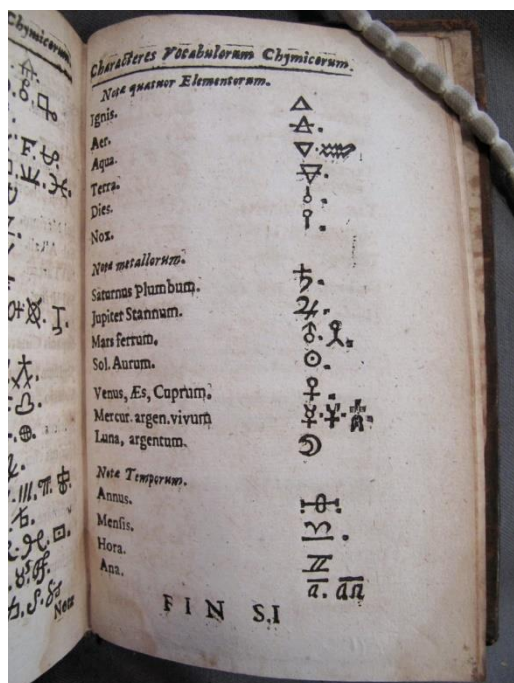 Chymicorum.
Characteres Vocabulorum Chymicorum.
Notæ quatuor Elementorum.
Ignis. 🜂
Aer. 🜁.
Aqua. 🜄.
Terra. 🜃.
Dies.
Nox.
Notæ metallorum.
Saturnus plumbum. ♄.
Jupiter Stannum. ♃.
Mars ferrum. ♂.
Sol. Aurum. ☉.
Venus, Æs, Cuprum. ♀.
Mercur. argen. vivum ☿.
Luna, argentum. ☽
Notæ Temporum.
Annus.
Mensis.
Hora.
Ana. a̅. a̅n̅
FIN SI
Notæ